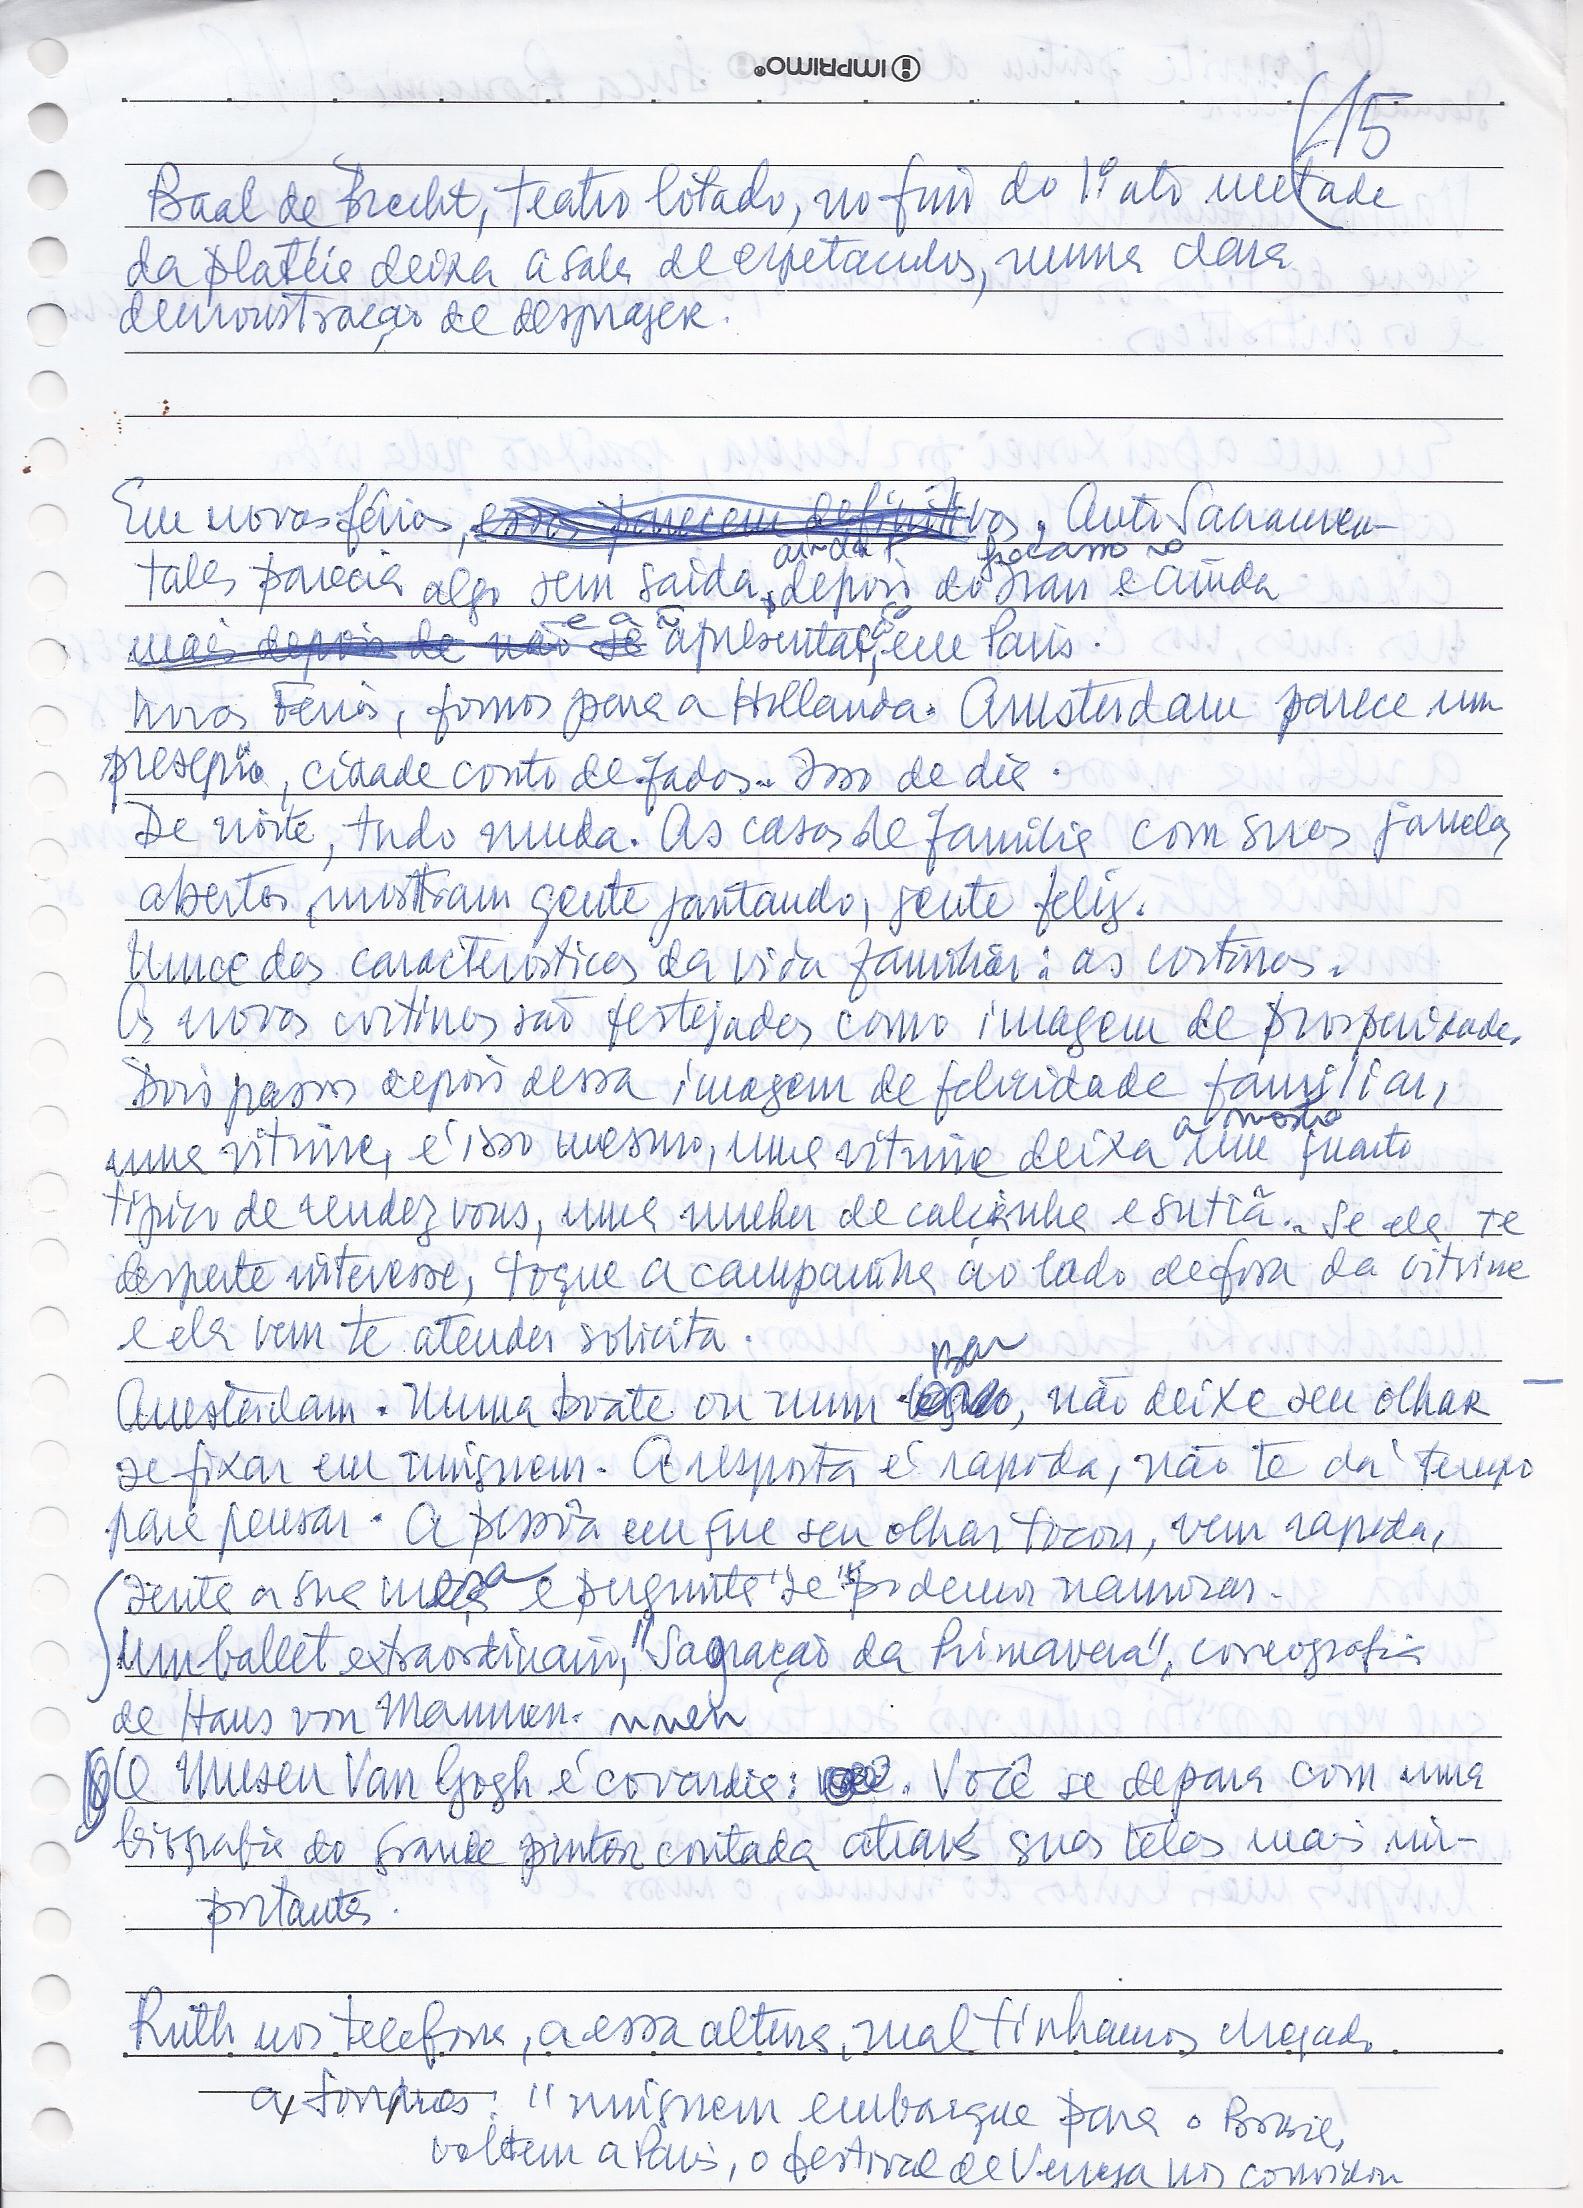 IMPRIMO®
15
Baal de Brecht, teatro lotado, no fim do 1º ato metade
da platéia deixa a sala de espetaculos, numa clara
demonstração de desprazer.
Em novas férias, essas parecem definitivas, Auto Sacramen-
ainda + fracasso no
tales parecia algo sem saida, depois do Iran e ainda
e a ã ão
mais depois de não se apresentar, em Paris.
Novas Férias, fomos para a Hollanda. Amsterdam parece um
presepio, cidade conto de fadas. Isso de dia.
De noite, tudo muda. As casas de familia com suas janelas
abertas, mostram gente jantando, gente feliz.
Uma das caracteristicas da vida familiar: as cortinas.
As novas cortinas são festejadas como imagem de prosperidade.
Dois passos depois dessa imagem de felicidade familiar,
a mostra
uma vitrine, é isso mesmo, uma vitrine deixa um quarto
tipico de rendez vous, uma mulher de calcinha e sutiã. Se ela te
desperta interesse, toque a campainha ao lado de fora da vitrine
e ela vem te atender solicita.
Bar
Amsterdam. Numa boate ou num, não deixe seu olhar
se fixar em ninguem. A resposta é rapida, não te dá tempo
para pensar. A pessôa em que seu olhar tocou, vem rapida,
senta a sua mesa e pergunta se "podemos namorar.
Um ballet extraordinario, "Sagração da Primavera", coreografia
de Hans von Mannen.
O Museu Van Gogh é covardia: Você se depara com uma
biografia do grande pintor contada através suas telas mais im-
portantes.
Ruth nos telefona, a essa altura, mal tinhamos chegado
a Londres: "ninguem embarque para o Brasil,
voltem a Paris, o festival de Veneza nos convidou